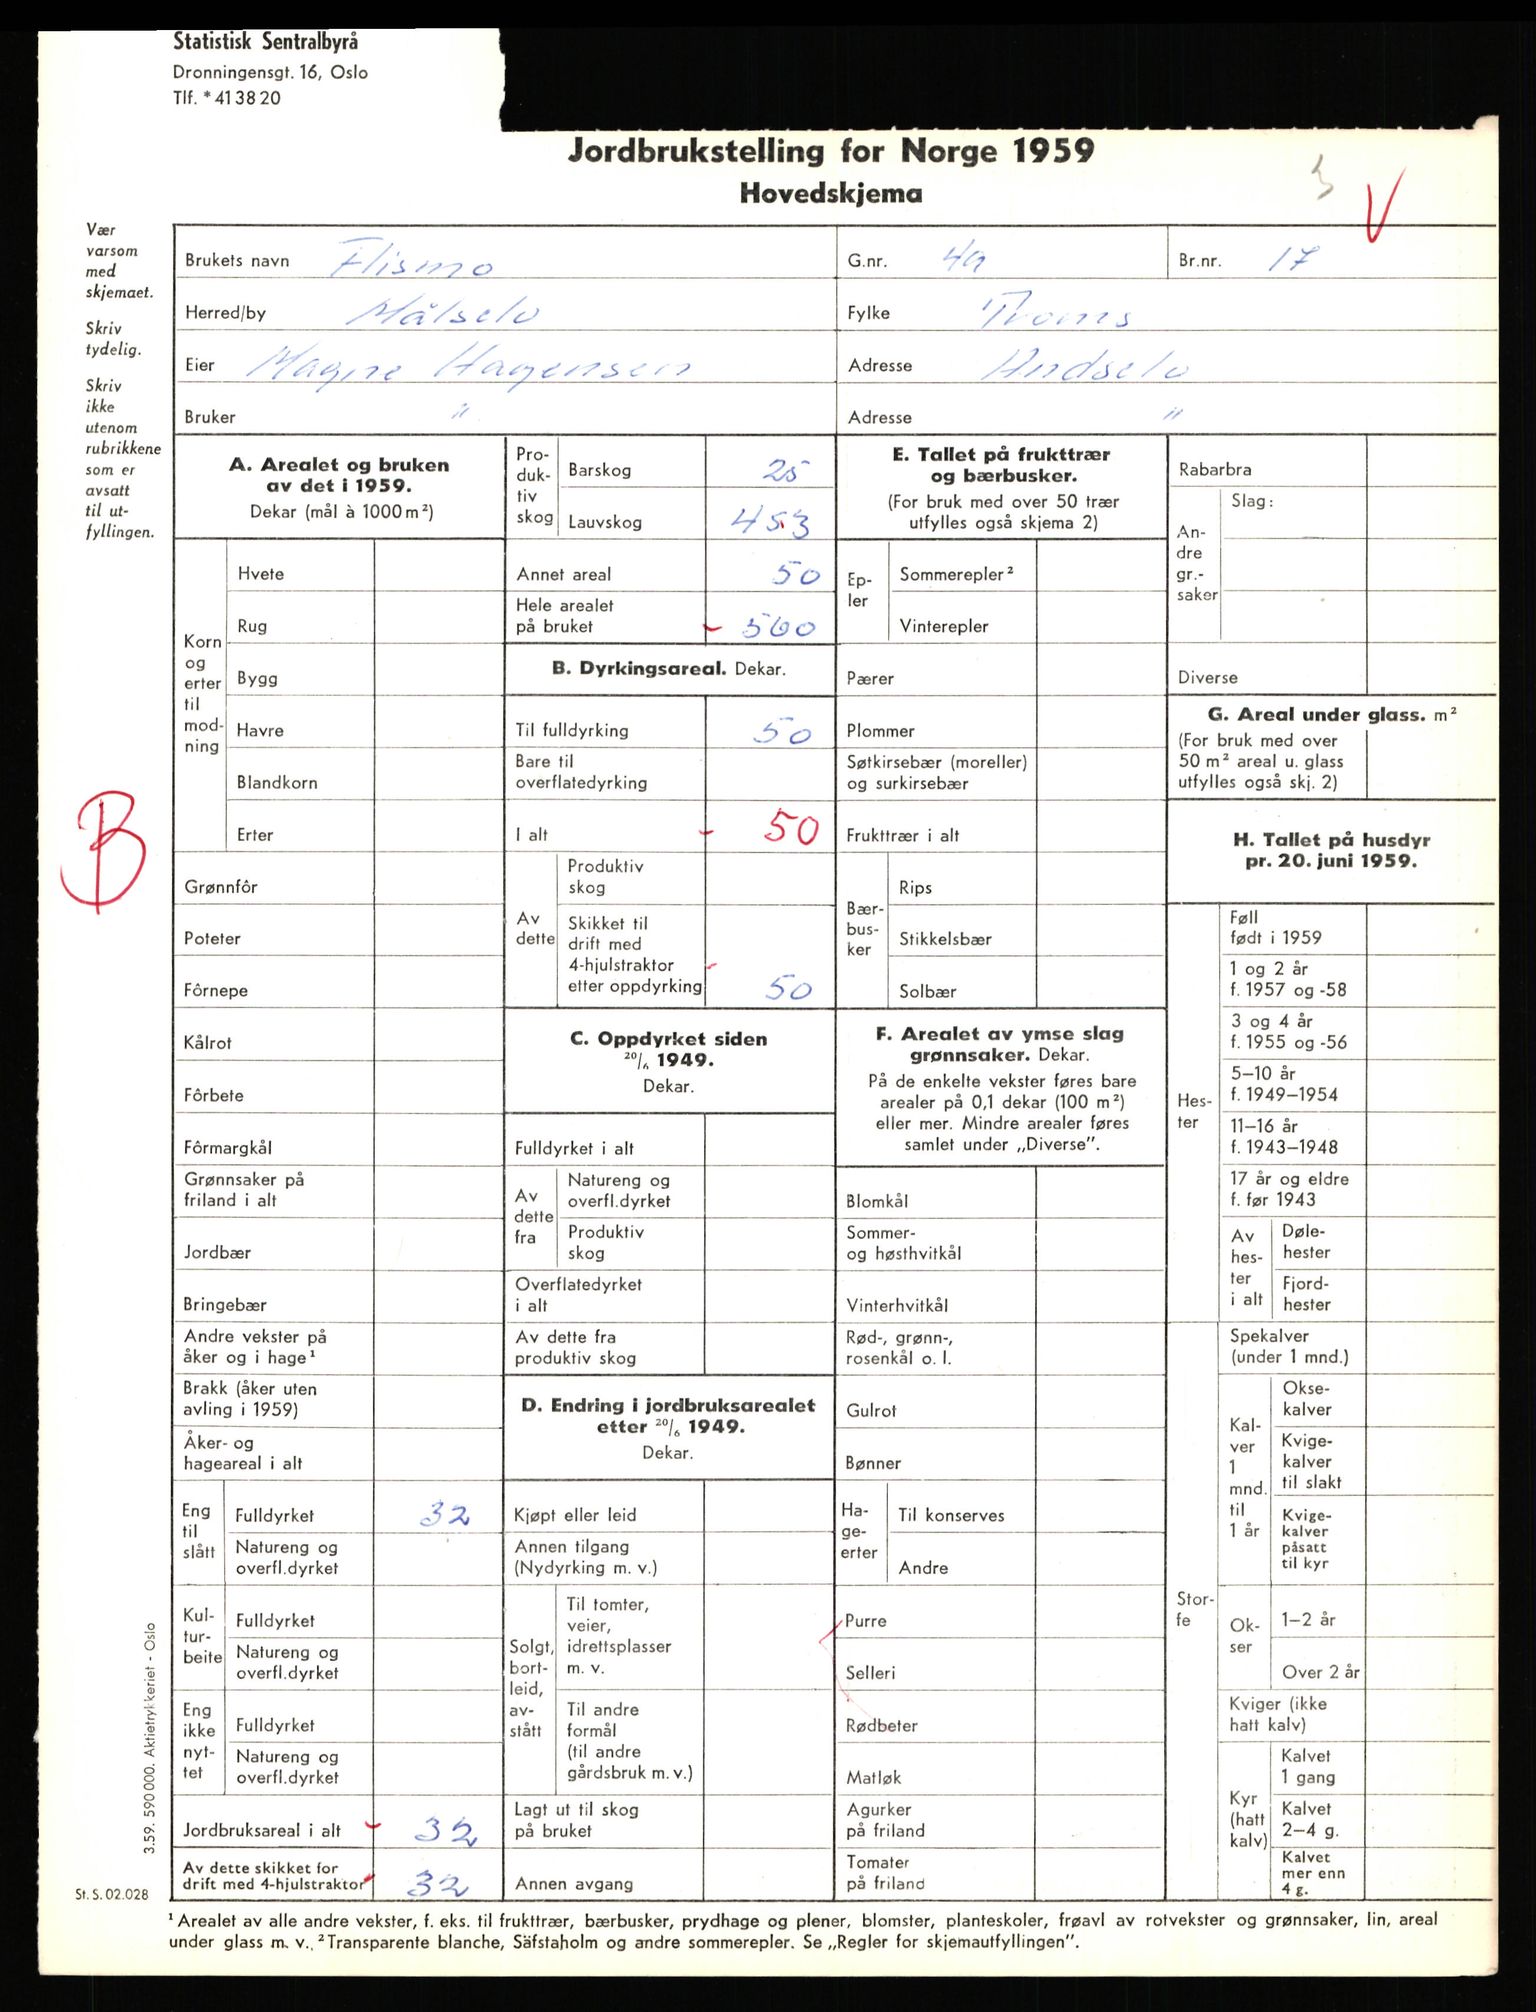 Statistisk Sentralbyrå
Dronningensgt. 16, Oslo
Tlf. * 41 38 20
Jordbrukstelling for Norge 1959
Hovedskjema
V
Vær
varsom
med
skjemaet.
Skriv
tydelig.
Skriv
ikke
utenom
rubrikkene
som er
avsatt
til ut-
fyllingen.
Brukets navn Flismo G.nr. 49 Br.nr. 17
Herred/by Målselv Fylke Troms
Eier Magne Hagensen Adresse Andselv
Bruker " Adresse "
A. Arealet og bruken
av det i 1959.
Dekar (mål à 1000 m²)
Korn
og
erter
til
mod-
ning
Hvete
Rug
Bygg
Havre
Blandkorn
Erter
B
Grønnfôr
Poteter
Fôrnepe
Kålrot
Fôrbete
Fôrmargkål
Grønnsaker på
friland i alt
Jordbær
Bringebær
Andre vekster på
åker og i hage¹
Brakk (åker uten
avling i 1959)
Åker- og
hageareal i alt
Eng
til
slått
Fulldyrket 32
Natureng og
overfl.dyrket
Kul-
tur-
beite
Fulldyrket
Natureng og
overfl.dyrket
Eng
ikke
nyt-
tet
Fulldyrket
Natureng og
overfl.dyrket
Jordbruksareal i alt 32
Av dette skikket for
drift med 4-hjulstraktor 32
Pro-
duk-
tiv
skog
Barskog 25
Lauvskog 453
Annet areal 50
Hele arealet
på bruket 560
B. Dyrkingsareal. Dekar.
Til fulldyrking 50
Bare til
overflatedyrking
I alt 50
Av
dette
Produktiv
skog
Skikket til
drift med
4-hjulstraktor
etter oppdyrking 50
C. Oppdyrket siden
20/6 1949.
Dekar.
Fulldyrket i alt
Av
dette
fra
Natureng og
overfl.dyrket
Produktiv
skog
Overflatedyrket
i alt
Av dette fra
produktiv skog
D. Endring i jordbruksarealet
etter 20/6 1949.
Dekar.
Kjøpt eller leid
Annen tilgang
(Nydyrking m. v.)
Solgt,
bort-
leid,
av-
stått
Til tomter,
veier,
idrettsplasser
m. v.
Til andre
formål
(til andre
gårdsbruk m. v.)
Lagt ut til skog
på bruket
Annen avgang
E. Tallet på frukttrær
og bærbusker.
(For bruk med over 50 trær
utfylles også skjema 2)
Ep-
ler
Sommerepler²
Vinterepler
Pærer
Plommer
Søtkirsebær (moreller)
og surkirsebær
Frukttrær i alt
Bær-
bus-
ker
Rips
Stikkelsbær
Solbær
F. Arealet av ymse slag
grønnsaker. Dekar.
På de enkelte vekster føres bare
arealer på 0,1 dekar (100 m²)
eller mer. Mindre arealer føres
samlet under „Diverse".
Blomkål
Sommer-
og høsthvitkål
Vinterhvitkål
Rød-, grønn-,
rosenkål o. l.
Gulrot
Bønner
Ha-
ge-
erter
Til konserves
Andre
Purre
Selleri
Rødbeter
Matløk
Agurker
på friland
Tomater
på friland
Rabarbra
An-
dre
gr.-
saker
Slag:
Diverse
G. Areal under glass. m²
(For bruk med over
50 m² areal u. glass
utfylles også skj. 2)
H. Tallet på husdyr
pr. 20. juni 1959.
Hes-
ter
Føll
født i 1959
1 og 2 år
f. 1957 og -58
3 og 4 år
f. 1955 og -56
5–10 år
f. 1949–1954
11–16 år
f. 1943–1948
17 år og eldre
f. før 1943
Av
hes-
ter
i alt
Døle-
hester
Fjord-
hester
Stor-
fe
Spekalver
(under 1 mnd.)
Kal-
ver
1
mnd.
til
1 år
Okse-
kalver
Kvige-
kalver
til slakt
Kvige-
kalver
påsatt
til kyr
Ok-
ser
1–2 år
Over 2 år
Kviger (ikke
hatt kalv)
Kyr
(hatt
kalv)
Kalvet
1 gang
Kalvet
2–4 g.
Kalvet
mer enn
4 g.
3.59. 590 000. Aktietrykkeriet - Oslo
St. S. 02.028
¹ Arealet av alle andre vekster, f. eks. til frukttrær, bærbusker, prydhage og plener, blomster, planteskoler, frøavl av rotvekster og grønnsaker, lin, areal
under glass m. v. ² Transparente blanche, Säfstaholm og andre sommerepler. Se „Regler for skjemautfyllingen".